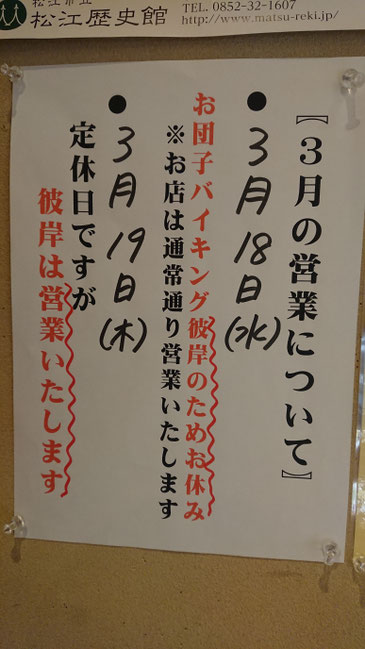 松江市立
松江歴史館
TEL. 0852-32-1607
http://www.matsu-reki.jp/
【3月の営業について】
●3月18日(水)
お団子バイキング彼岸のためお休み
※お店は通常通り営業いたします
●3月19日(木)
定休日ですが
彼岸は営業いたします